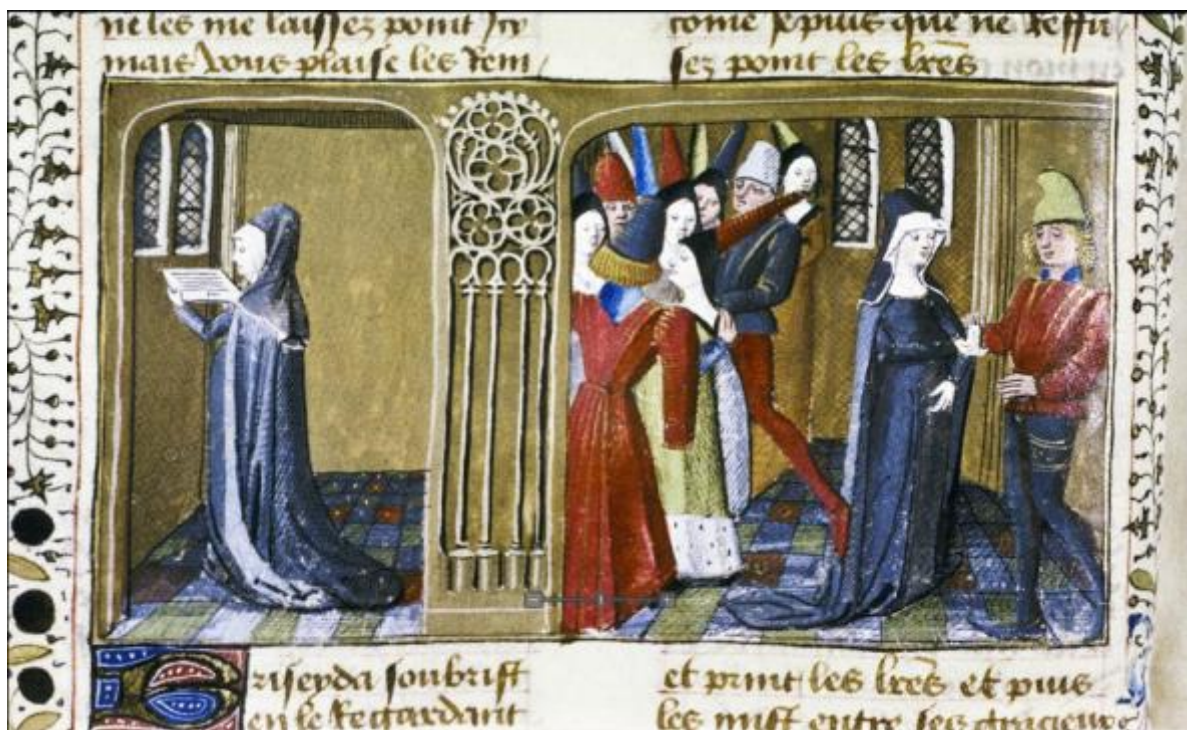 ne les me laissez point Icy
mais vous plaise les Rem
come Je puis que ne Reffu
sez point les lrẽs
riseyda soubrist
en le Regardant
et print les lrẽs et puis
les mist entre ses gracieuse